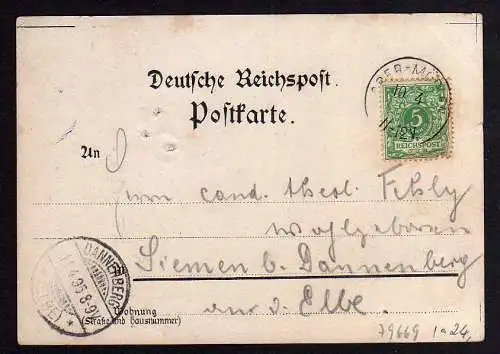 Deutsche Reichspost.
Postkarte.
OBER-MO
10 4
11-12 V.
5
REICHSPOST
An
Herrn cand. theol. Fehly
Wohlgeboren
Siemen b. Dannenberg
an d. Elbe.
DANNENBERG
11.4.95.8-9V.
(ELBE)
Wohnung
(Straße und Hausnummer)
79669 1a24,